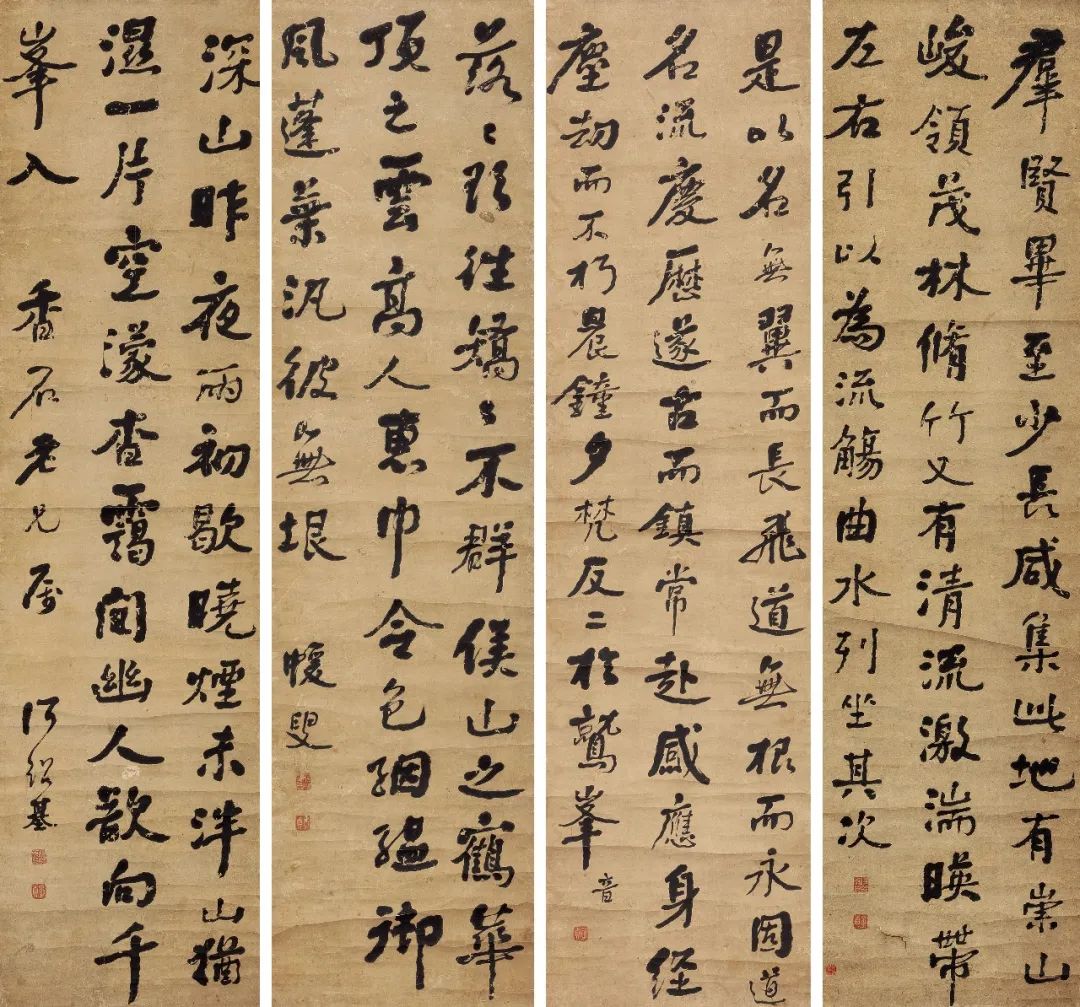 羣賢畢至少長咸集此地有崇山
峻領茂林脩竹又有清流激湍暎帶
左右引以為流觴曲水列坐其次
是以名無翼而長飛道無根而永固道
名流慶歷遂古而鎮常赴感應身經
塵劫而不朽晨鐘夕梵反二於鷲峯 音
落〻欲往矯〻不群緱山之鶴華
頂之雲高人惠巾令色絪縕御
風蓬葉汎彼無垠 蝯叟
深山昨夜雨初歇曉煙未泮山猶
濕一片空濛杳靄間幽人歗向千
峯入 香石老兄屬 何紹基